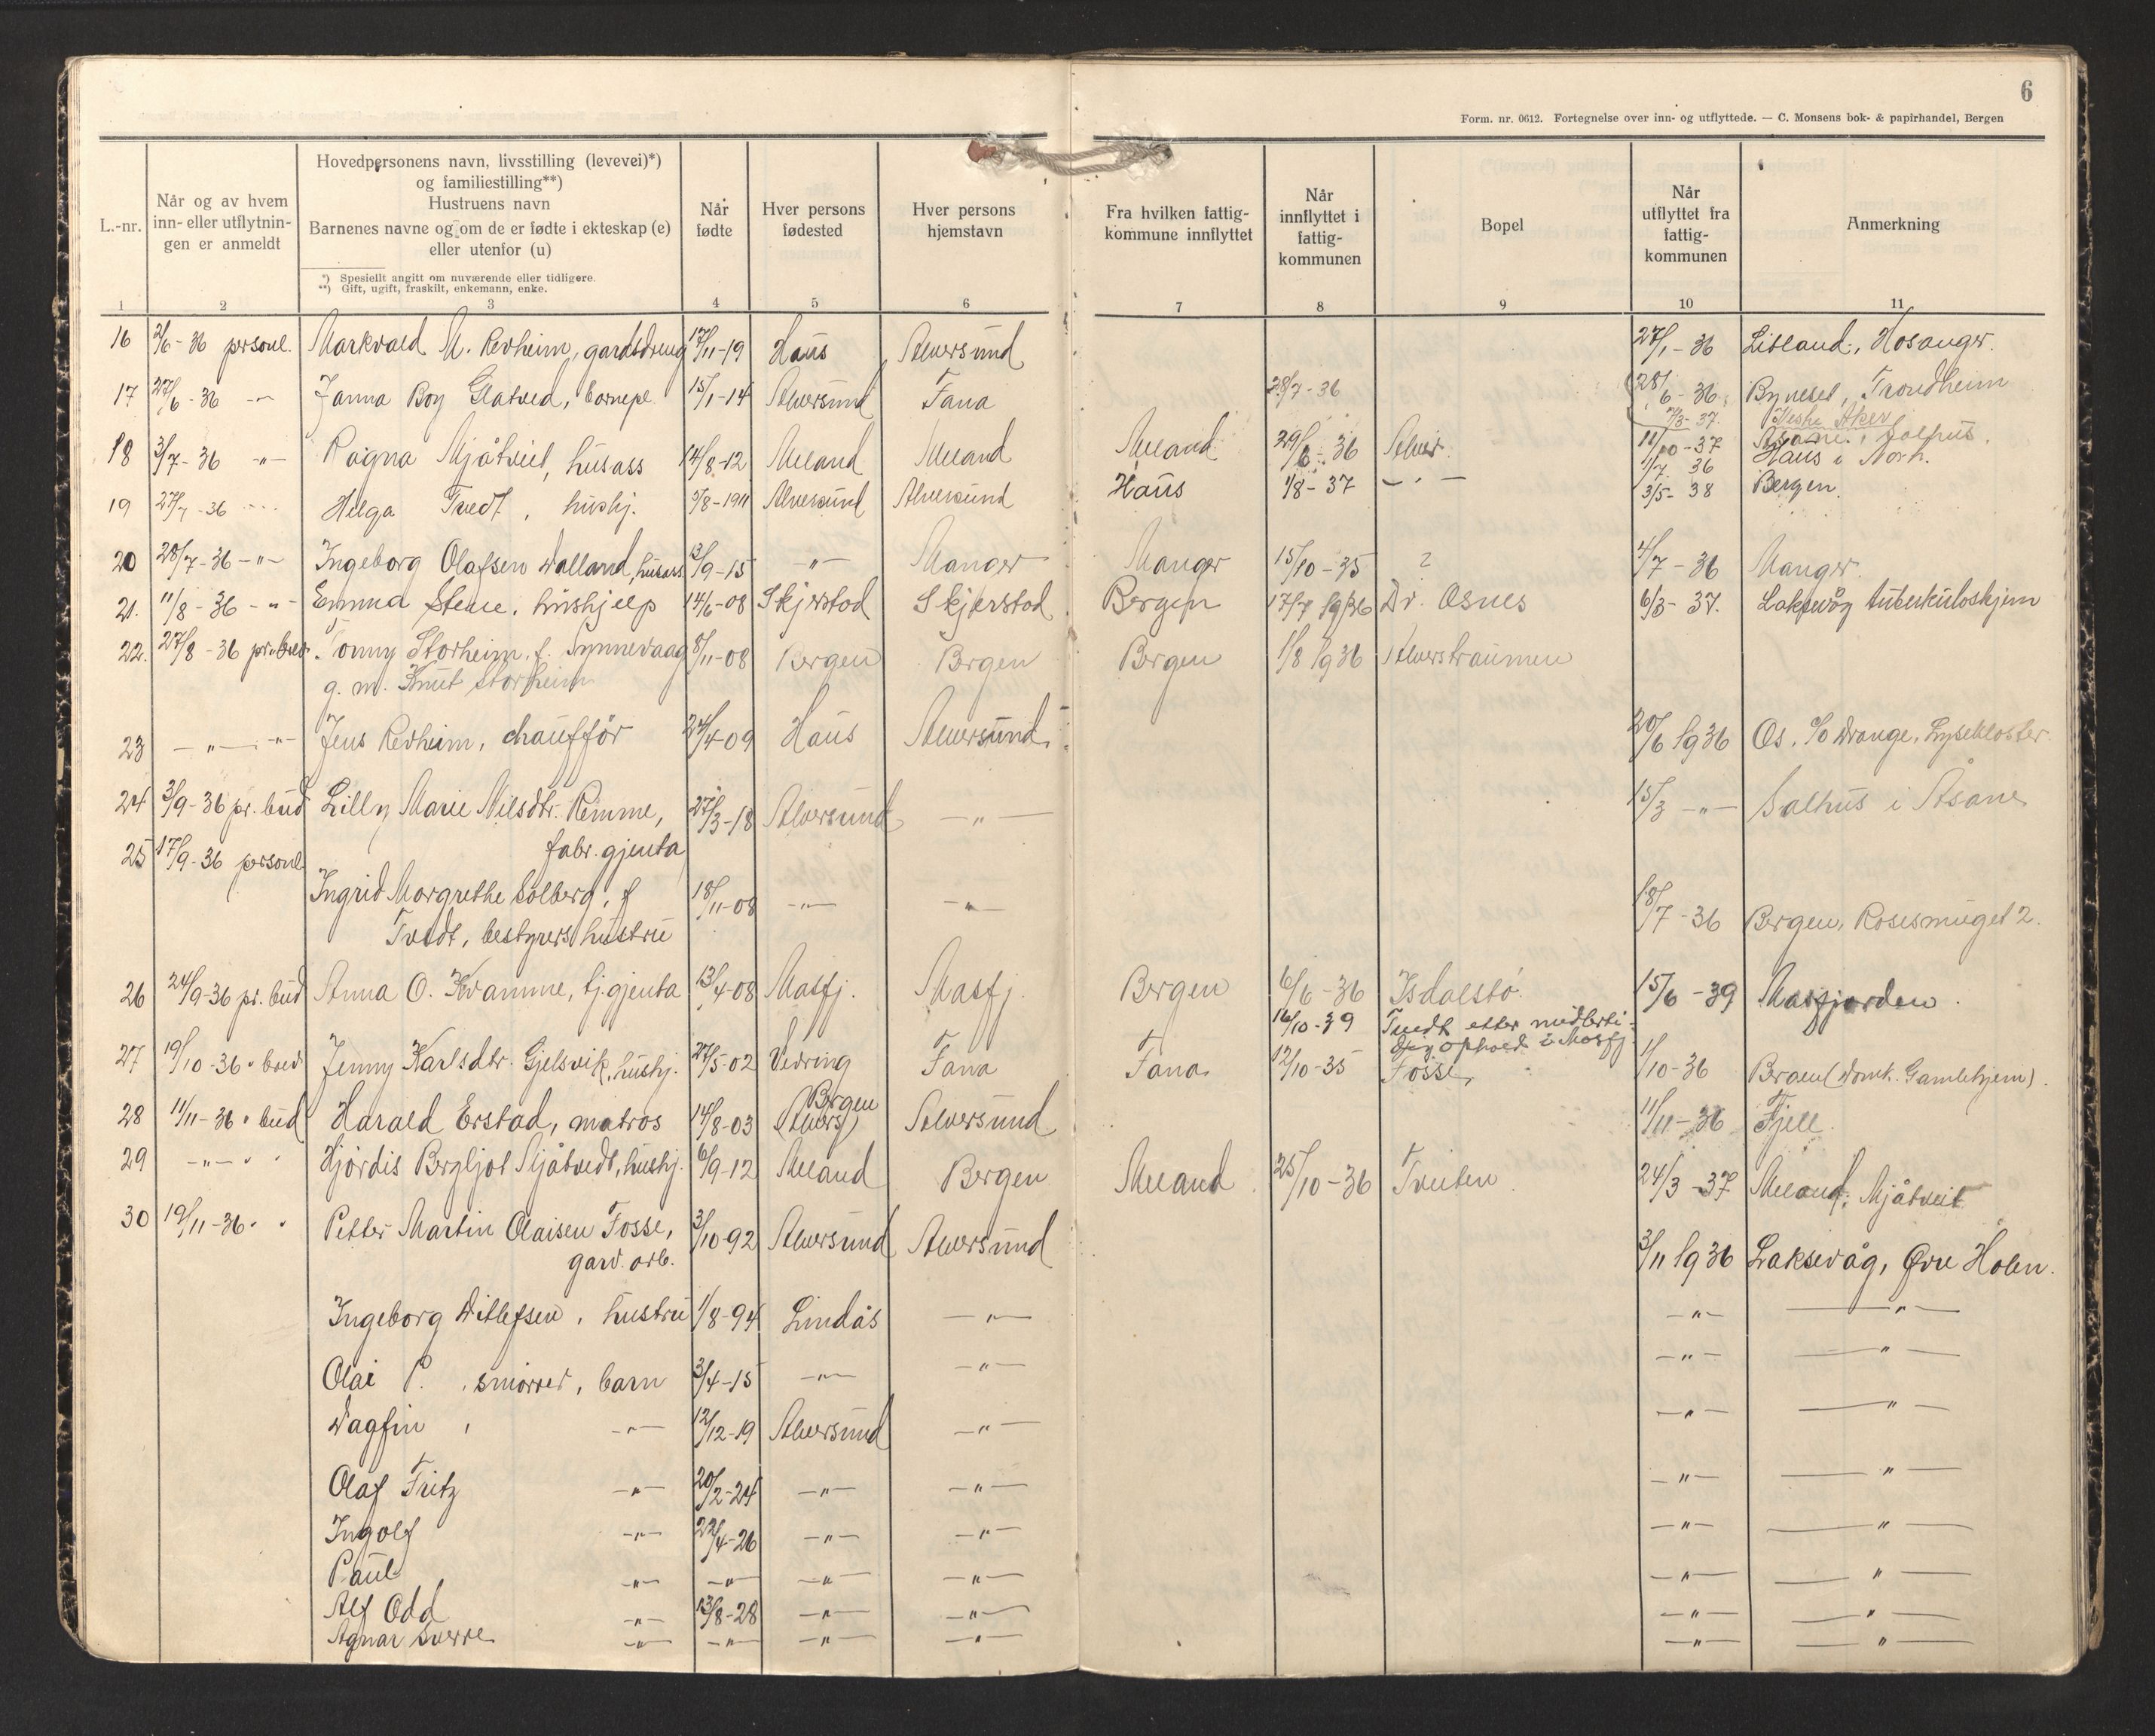 6
Form. nr. 0612. Fortegnelse over inn- og utflyttede. — C. Monsens bok- & papirhandel, Bergen
L.-nr.
Når og av hvem
inn- eller utflytnin-
gen er anmeldt
Hovedpersonens navn, livsstilling (levevei)*)
og familiestilling**)
Hustruens navn
Barnenes navne og om de er fødte i ekteskap (e)
eller utenfor (u)
*) Spesiellt angitt om nuværende eller tidligere.
**) Gift, ugift, fraskilt, enkemann, enke.
Når
fødte
Hver persons
fødested
Hver persons
hjemstavn
Fra hvilken fattig-
kommune innflyttet
Når
innflyttet i
fattig-
kommunen
Bopel
Når
utflyttet fra
fattig-
kommunen
Anmerkning
1 2 3 4 5 6 7 8 9 10 11
16 2/6-36 personl. Markvald M. Revheim, gardsdreng 17/11-19 Haus Alversund 27/1-36 Lisland, Hosanger.
17 27/6-36 -"- Janna Boy Glatved, barnepl. 15/1-14 Alversund Fana 28/7-36 28/6-36 Byneset, Trondheim
7/3-37. Vestre Aker
18 3/7-36 -"- Ragna Mjåtveit, husass 14/8-12 Meland Meland Meland 29/6-36 Alver. 11/10-37 Åsane, Salhus.
1/7 36 Haus i Norh.
19 27/7-36 Helga Tvedt, hushj. 3/8-1911 Alversund Alversund Haus 1/8-37 -"- 3/5-38 Bergen.
20 28/7-36 -"- Ingeborg Olafsen Dalland, husass 13/9-15 -"- Manger Manger 15/10-35 ? 4/7-36 Manger.
21. 11/8-36 -"- Emma Stene, hushjelp 14/6-08 Skjerstad Skjerstad Bergen 17/7 1936 Dr. Osnes 6/3-37. Laksevåg tuberkuloshjem
22. 27/8-36 pr. brev. Tonny Storheim, f. Synnevaag 8/11-08 Bergen Bergen Bergen 1/8 1936 Alverstraumen
g. m. Knut Storheim
23 -"- -"- Jens Revheim, chauffør 24/4-09 Haus Alversund. 20/6 1936 Os, c/o Drange, Lysekloster.
24 3/9-36 pr. bud Lilly Marie Nilsdtr. Rimme, 27/3-18 Alversund -"- 15/3 -"- Salhus i Åsane
fabr. gjenta
25 17/9-36 personl
Ingrid Margrethe Solberg, f 18/11-08 -"- -"- 18/7-36 Bergen, Rosesmuget 2.
Tvedt, bestyrers hustru
26 24/9-36 pr. bud Anna O. Kvamme, tj.gjenta 13/4-08 Masfj. Masfj. Bergen 6/6-36 Isdalstø. 15/6-39 Masfjorden.
16/10-39 Tvedt etter midlerti-
dig ophold i Masfj.
27 19/10-36 " bud Jenny Karlsdtr. Gjelsvik, hushj. 27/5-02 Vevring Fana Fana 12/10-35 Fosse, 1/10-36 Bergen (Domk. Gamlehjem).
28 11/11-36 " bud Harald Erstad, matros 14/8-03 Bergen (Alvers) Alversund 11/11-36 Fjell.
29 -"- " " Hjördis Bergljot Mjåtvedt, hushj. 6/9-12 Meland Bergen Meland 25/10-36 Tveiten 24/3-37 Meland, Mjåtveit
30 19/11-36 " " Petter Martin Olaisen Fosse, 3/10-92 Alversund Alversund 3/11 1936 Laksevåg, Øvre Holen.
gard. arb.
Ingeborg Ditlefsen, hustru 1/8-94 Lindås -"- -"- -"-
Olai P., smörrer, barn 3/4-15 -"- -"- -"- -"-
Dagfin, -"- 12/12-19 Alversund -"- -"- -"-
Olaf Fritz -"- 20/2-24 -"- -"- -"- -"-
Ingolf -"- 22/4-26 -"- -"- -"- -"-
Paul -"- -"- -"- -"- -"- -"-
Alf Odd -"- 13/8-28 -"- -"- -"- -"-
Agnar Sverre -"- -"- -"- -"- -"- -"-